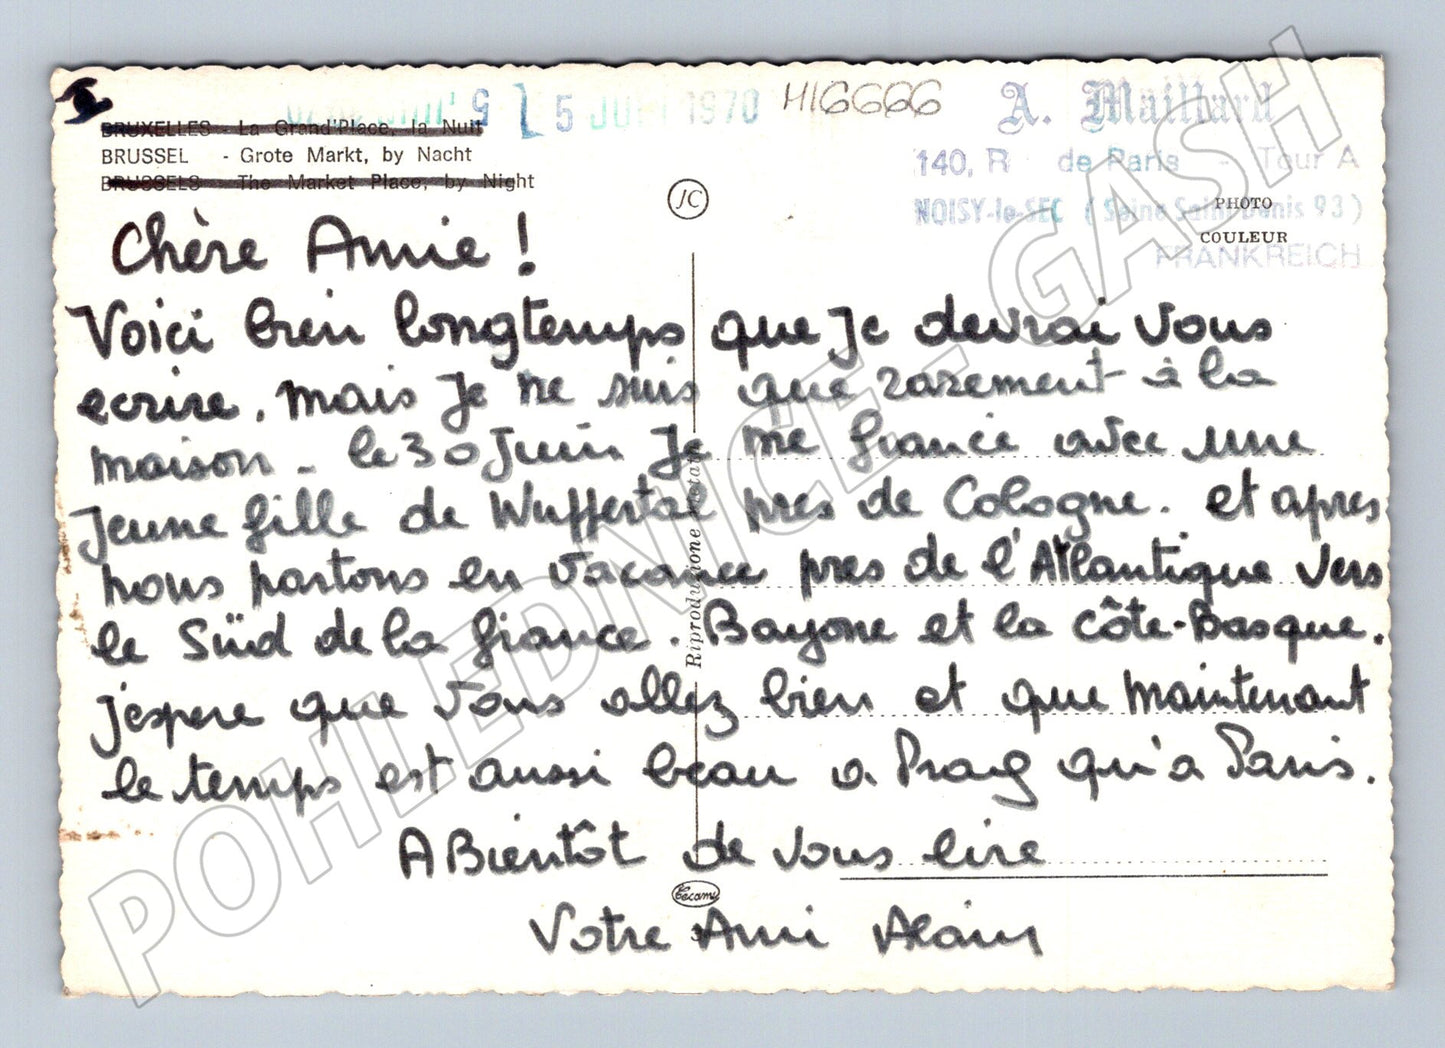 5 JUIN 1970
H16666
A. Maillard
140, R de Paris - Tour A
NOISY-le-SEC (Seine Saint Denis 93)
FRANKREICH
PHOTO
COULEUR
BRUXELLES - La Grand'Place, la Nuit
BRUSSEL - Grote Markt, by Nacht
BRUSSELS - The Market Place, by Night
JC
Chère Amie !
Voici bien longtemps que je devrai vous
ecrire. mais je ne suis que rarement à la
maison - le 30 Juin Je me fiance avec une
jeune fille de Wuppertal pres de Cologne. et apres
nous partons en vacance pres de l'Atlantique vers
le Süd de la france. Bayone et la côte-Basque.
j'espere que vous allez bien et que maintenant
le temps est aussi beau a Prag qu'a Paris.
A Bientôt de vous lire
Votre Ami Alain
Riprodzione vietata
Cecami
POHLEDNICE - GASH